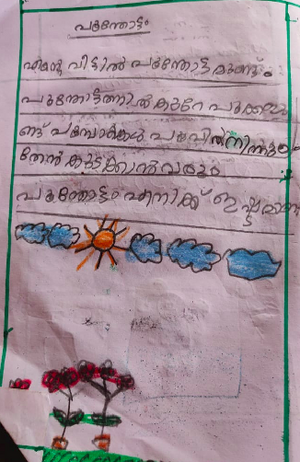 പൂന്തോട്ടം
എന്റെ വീട്ടിൽ പൂന്തോട്ട മുണ്ട്.
പൂന്തോട്ടത്തിൽ കുറേ പൂക്കളു
ണ്ട് പമ്പാറ്റകൾ പൂവിൽ നിന്നും
തേൻ കുടിക്കാൻ വരും
പൂന്തോട്ടം എനിക്ക് ഇഷ്ടമാണ്